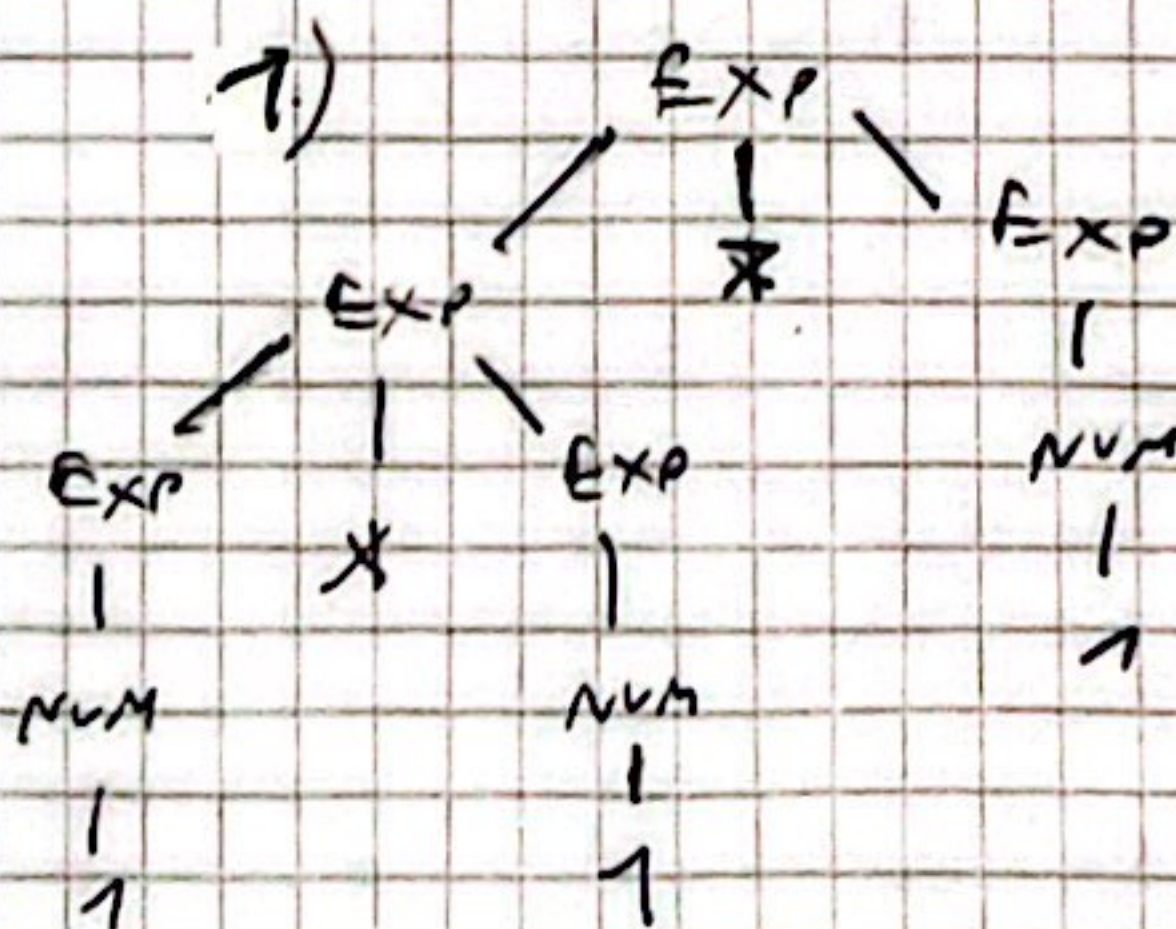 1.) Exp
Exp * Exp
Exp * Exp NUM
NUM NUM 1
1 1